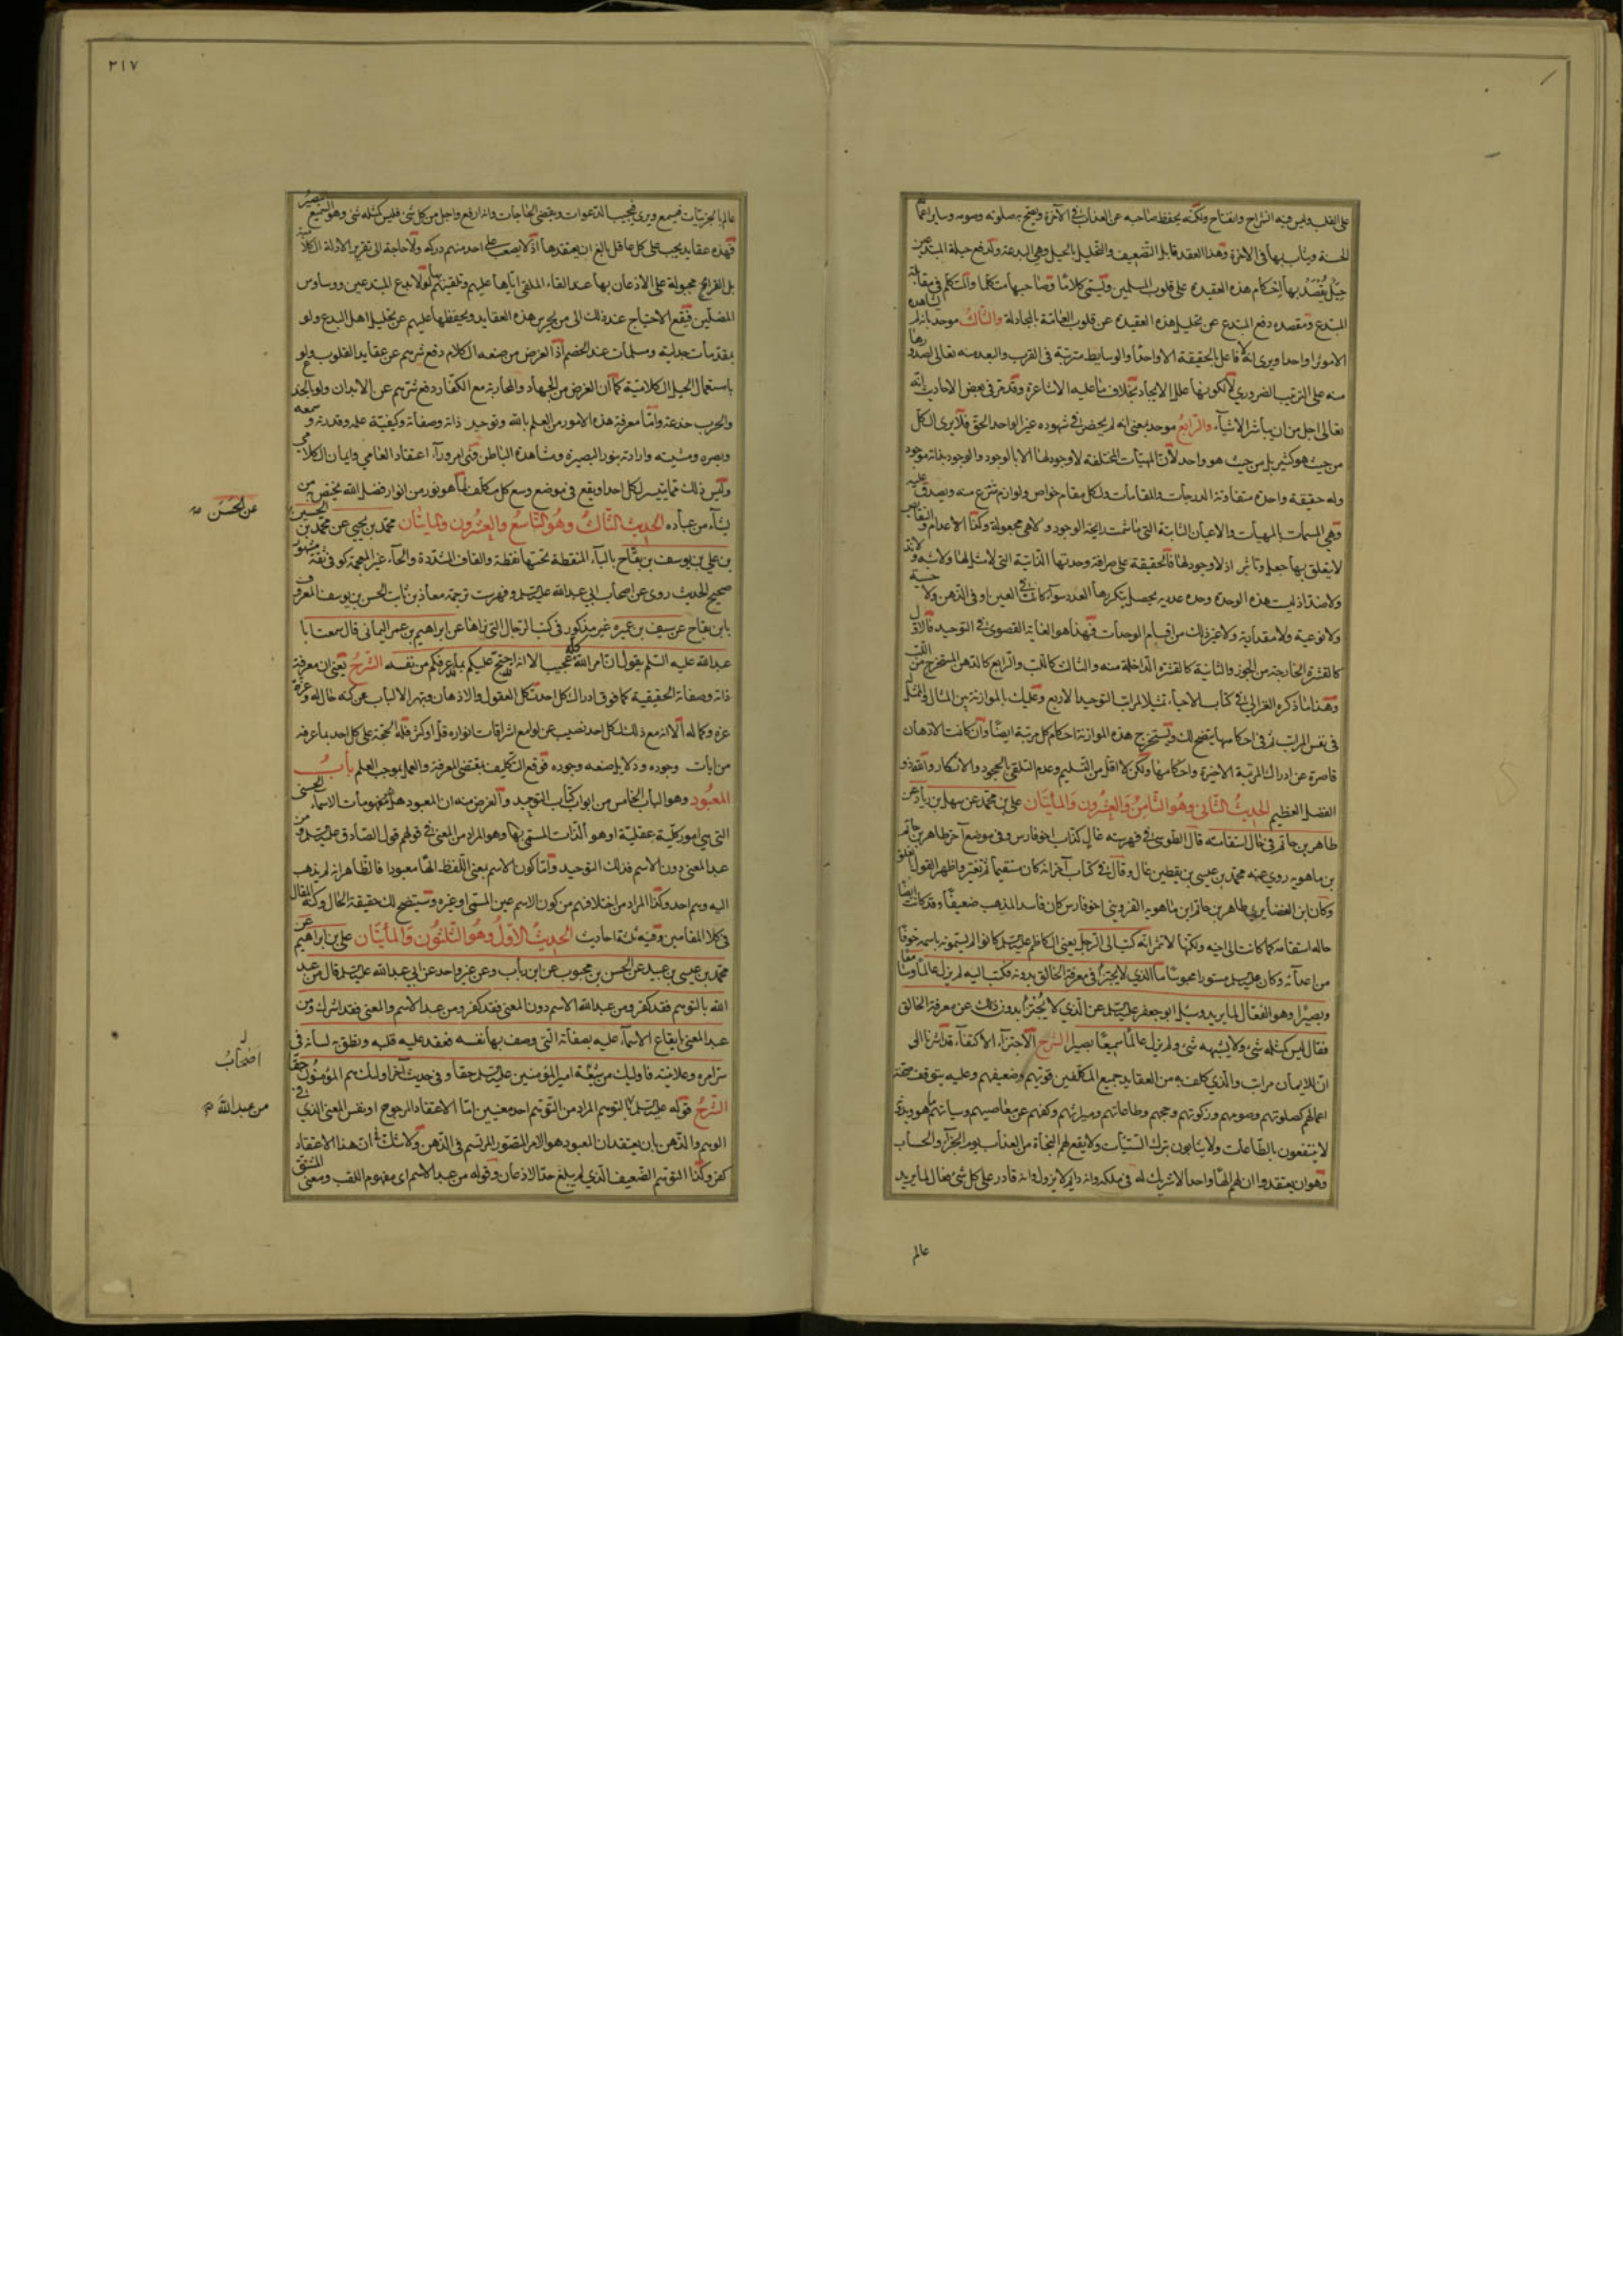 على القلب وليس فيه انشراح وانفتاح ولكنه يحفظ صاحبه عن العذاب في الآخرة ويصح به صلوته وصومه وساير اعماله
الحسنة ويثاب بها في الاخرة وهذا العقد قابل التضعيف والتحليل بالحيل وهي البدعة ولدفع حيلة المبتدعين
حيل يقصد بها احكام هذه العقيدة على قلوب المسلمين وتسمى كلاما وصاحبها متكلما والمتكلم في مقابلة
المبتدع ومقصده دفع المبتدع عن تحليل هذه العقيدة عن قلوب العامة بالمجادلة والثالث موحد بانه لم يشاهد
الا موثرا واحدا ويرى انه لا فاعل بالحقيقة الا واحدا والوسايط مترتبة في القرب والبعد منه تعالى لصدورها
منه على الترتيب الضروري لا لكونها علل الايجاد بخلاف ما عليه الاشاعرة وقد مر في بعض الاحاديث انه
تعالى اجل من ان يباشر الاشيآء والرابع موحد بمعنى انه لم يحضر في شهوده غير الواحد الحق فلا يرى الكل
من حيث هو كثير بل من حيث هو واحد لان المهيات المختلفة لا وجود لها الا بالوجود والوجود بذاته موجود
وله حقيقة واحدة متفاوتة الدرجات والمقامات ولكل مقام خواص ولوازم تنتزع منه ويصدق عليه
وهي المسمات بالمهيات والاعيان الثابتة التي ما شمت رايحة الوجود ولا هي مجعولة وكذا الاعدام والنقايص
لا يتعلق بها جعل وتاثير اذ لا وجود لها فالحقيقة على صرافة وحدتها الذاتية التي لا مثل لها ولا شبه ولا ند
ولا ضد اذ ليست هذه الوحدة وحدة عددية يحصل بتكررها العدد سوآء كانت في العين او في الذهن ولا جنسية
ولا نوعية ولا مقدارية ولا غير ذلك من اقسام الوحدات فهذا هو الغاية القصوى في التوحيد فالاول
كالقشرة الخارجة من الجوز والثانية كالقشرة الداخلة منه والثالث كاللب والرابع كالدهن المستخرج من اللب
وهذا ما ذكره الغزالي في كتاب الاحياء تمثيلا لمراتب التوحيد الاربع وعليك بالموازنة بين المثال والممثل
في نفس المراتب ثم في احكامها يتضح لك وتستخرج هذه الموازنة احكام كل مرتبة ايضا وان كانت الاذهان
قاصرة عن ادراك المرتبة الاخيرة واحكامها ولكن لا اقل من التسليم وعدم التلقي بالجحود والانكار والله ذو
الفضل العظيم الحديث الثاني وهو الثامن والعشرون والمأيتان علي بن محمد عن سهل بن زياد عن
طاهر بن حاتم في حال استقامته قال الطوسي في فهرسته غال كذاب اخو فارس وفي موضع آخر طاهر بن حاتم
بن ماهويه روي عنه محمد بن عيسى بن يقطين غال وقال في كتاب آخر انه كان مستقيما ثم تغير واظهر القول بالغلو
وكان ابن الغضايري طاهر بن حاتم ابن ماهويه القزويني اخو فارس كان فاسد المذهب ضعيفا وقد كانت ايضا
حاله استقامة كما كانت لاخيه ولكنها لا تثمر انه كتب الى الرجل يعني الكاظم عليه السلم كانوا لم يسموه باسمه خوفا
من اعدآئه وكان عليه السلم مستورا محبوسا ما الذي لا يجتزأ في معرفة الخالق بدونه فكتب اليه لم يزل عالما وسامعا
وبصيرا وهو الفعال لما يريد وسئل ابو جعفر عليه السلم عن الذي لا يجتزأ بدون ذلك عن معرفة الخالق
فقال ليس كمثله شئ ولا يشبهه شئ ولم يزل عالما سميعا بصيرا الشرح الاجتزآء الاكتفآء قد اشرنا الى
ان للايمان مراتب والذي كلف به من العقايد جميع المكلفين قويهم وضعيفهم وعليه يتوقف صحة
اعمالهم كصلوتهم وصومهم وزكوتهم وحجهم وطاعاتهم وميراثهم وكفهم عن معاصيهم وسيئاتهم ما هو وبدونه
لا ينتفعون بالطاعات ولا يثابون بترك السيئات ولا يقع لهم النجاة من العذاب يوم الجزآء والحساب
وهو ان يعتقدوا ان لهم الها واحدا لا شريك له في ملكه وانه دايم لا يزول وانه قادر على كل شئ فعال لما يريد
عالم
٢١٧
عالم بالجزئيات فيسمع ويرى فيجيب الدعوات ويقضي الحاجات وانه ارفع واجل من كل شئ فليس كمثله شئ وهو السميع البصير
فهذه عقايد يجب على كل عاقل بالغ ان يعتقدها اذ لا يصعب على احد منهم دركه ولا حاجة الى تقرير الادلة الكلامية
بل القرايح مجبولة على الاذعان بها عند القاء الملقي اياها عليهم وتلقينهم بها لولا بدع المبتدعين ووساوس
المضلين فيقع الاحتياج عند ذلك الى من يحرس هذه العقايد ويحفظها عليهم عن تخليل اهل البدع ولو
بمقدمات جدلية ومسلمات عند الخصم اذ الغرض من صنعة الكلام دفع شرهم عن عقايد القلوب ولو
باستعمال الحيل الكلامية كما ان الغرض من الجهاد والمحاربة مع الكفار دفع شرهم عن الابدان ولو بالخدع
والحرب خدعة واما معرفة هذه الامور من العلم بالله وتوحيد ذاته وصفاته وكيفية علمه وقدرته وسمعه
وبصره ومشيته وارادته بنور البصيرة ومشاهدة الباطن فهي امر ورآء اعتقاد العامي وايمان الكلامي
وليس ذلك مما يتيسر لكل احد ويقع في موضع وسع كل مكلف انما هو نور من انوار فضل الله يختص به من
يشآء من عباده الحديث الثالث وهو التاسع والعشرون والمأيتان محمد بن يحيى عن محمد بن الحسين
عن الحسن
بن علي بن يوسف بن بقاح بالباء المنقطة تحتها نقطة والقاف المشددة والحآء غير المعجمة كوفي ثقة مشهور
صحيح الحديث روى عن اصحاب ابي عبد الله عليه السلم وفي فهرست ترجمة معاذ بن ثابت الحسن بن يوسف المعروف
بابن بقاح عن سيف بن عميرة غير مذكور في كتب الرجال التي نراها عن ابراهيم بن عمر اليماني قال سمعت ابا
عبد الله عليه السلم يقول ان امر الله كله عجيب الا انه احتج عليكم بما عرفكم من نفسه الشرح يعني ان معرفة
ذاته وصفاته الحقيقية كما هو فوق ادراك كل احد تكل العقول والاذهان وتبهر الالباب عن كنه جلاله وعزة
عزه وكماله الا انه مع ذلك لكل احد نصيب عن لوامع اشراقات انواره قل او كثر فله الحجة على كل احد بما عرفه
من ايات وجوده ودلايل صنعه وجوده فوقع التكليف بمقتضى المعرفة والعمل بموجب العلم باب
المعبود وهو الباب الخامس من ابواب كتاب التوحيد والغرض منه ان المعبود هل هو مفهومات الاسماء الحسنى
التي هي امور كلية عقلية او هو الذات المسمى بها وهو المراد من المعنى في قولهم قول الصادق عليه السلم من
عبد المعنى دون الاسم فذلك التوحيد واما كون الاسم بمعنى اللفظ الها معبودا فالظاهر انه لم يذهب
اليه وهم احد وكذا المراد من اختلافهم من كون الاسم عين المسمى او غيره وسيتضح لك حقيقة الحال وكنه المقال
في كلا المقامين وفيه ثلثة احاديث الحديث الاول وهو الثلثون والمأيتان علي بن ابراهيم عن
محمد بن عيسى بن عبيد عن الحسن بن محبوب عن ابن رياب وعن غير واحد عن ابي عبد الله عليه السلم قال من عبد
الله بالتوهم فقد كفر ومن عبد الله الاسم دون المعنى فقد كفر ومن عبد الاسم والمعنى فقد اشرك ومن
عبد المعنى بايقاع الاسمآء عليه بصفاته التي وصف بها نفسه فعقد عليه قلبه ونطق به لسانه في
سرائره وعلانيته فاوليك من شيعة امير المؤمنين عليه السلم حقا وفي حديث آخر اوليك هم المؤمنون حقا
اصحاب
الشرح قوله عليه السلم بالتوهم المراد من التوهم احد معنيين اما الاعتقاد المرجوح او نفس المعنى الذي في
من عبد الله
الوهم والذهن بان يعتقد ان المعبود هو الامر المتصور المرتسم في الذهن ولا شك في ان هذا الاعتقاد
كفر وكذا التوهم الضعيف الذي لم يبلغ حد الاذعان وقوله من عبد الاسم اى مفهوم اللقب ومعنى المشتق